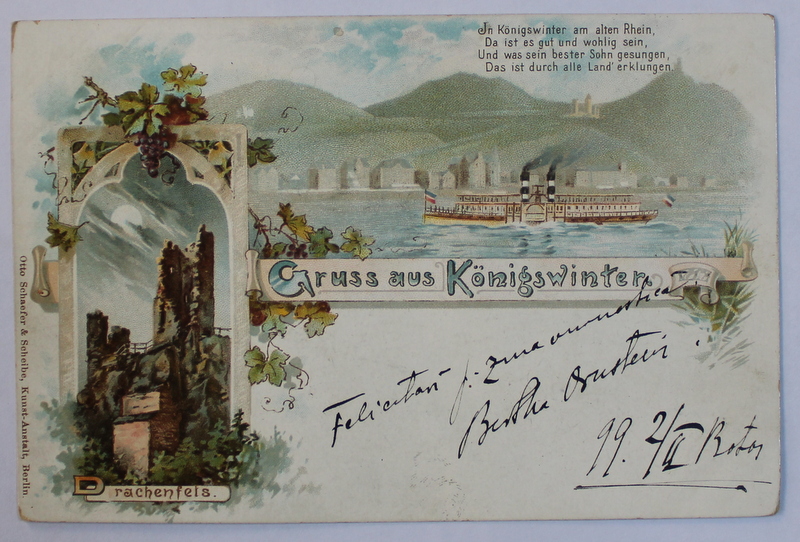 In Königswinter am alten Rhein,
Da ist es gut und wohlig sein,
Und was sein bester Sohn gesungen,
Das ist durch alle Land' erklungen.
Gruss aus Königswinter.
Drachenfels.
Otto Schaefer & Scheibe, Kunst-Anstalt, Berlin.
Felicitări și ziua onomastică
Bertha Ornstein.
99. 2/II